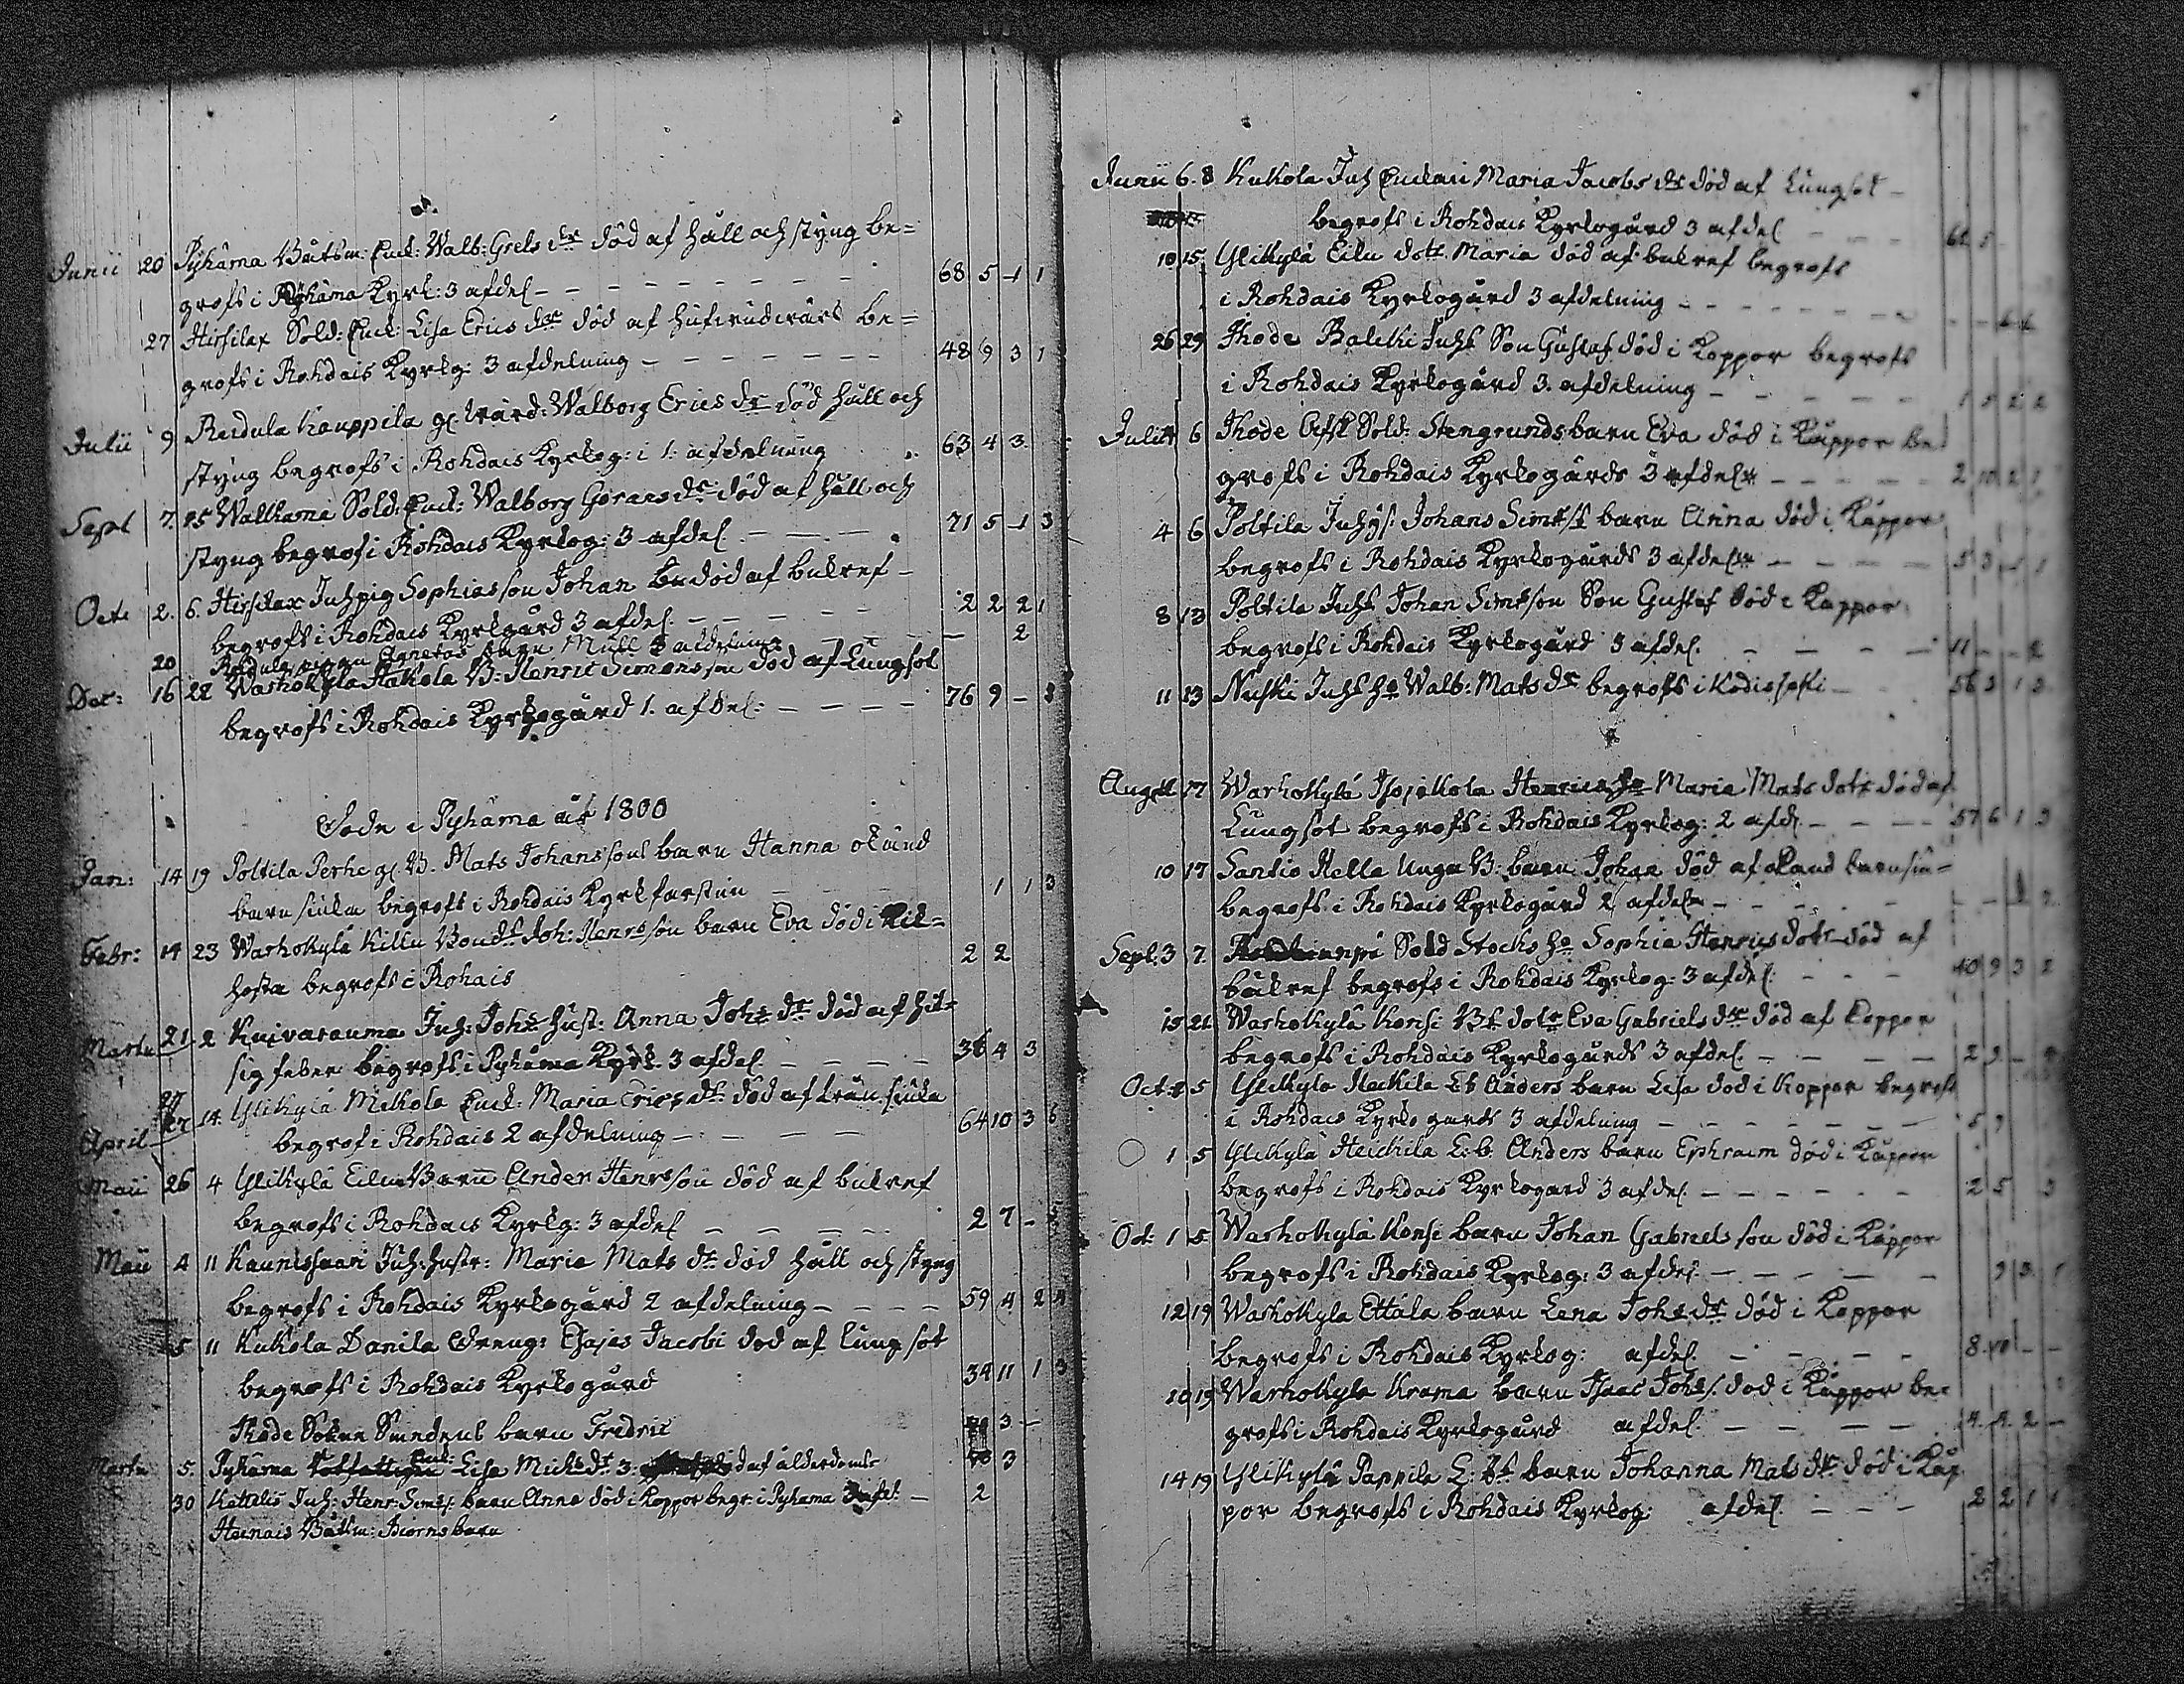 Junii 20 Pyhäma Båtsm: Enck: Walb: Grels dtr död af håll och styng be=
grofs i Pyhäma Kyrk: 3 afdel 68 5 - 1 1
27 Hirslax Sold: Enck: Lisa Erics dtr död af be=
grofs i Rohdais Kyrkg: 3 afdelning 48 9 3 1
Julii 9 Reidula Kauppila gl. Wärd: Walborg Erics dr död håll och
styng begrofs i Rohdais Kyrkog: i 1. afdelning 63 4 3
Sept 7. 15 Wallkama Sold: Enck: Walborg Görans dr död af håll och
styng begrof i Rohdais Kyrkog: 3 afdel 71 5 - 1 3
Oct: 2. 6. Hirslax Juhpig Sophias son Johan död af bukref
begrofs i Rohdais Kyrkgård 3 afdel. 2 2 2 1
20 Reidula pigan Agnetas barn Mull 3 afdelning 2
Dec: 16 22 Warhokyla Hakola B: Henric Simonsson död af Lungsot
begrofs i Rohdais Kyrkogård 1. afdel: 76 9 -
Döde i Pyhäma år 1800
Jan: 14 19 Poltila Perhe gl B. Mats Johanssons barn Hanna okänd
barnsiuka begrofs i Rohdais Kyrkfarstun 1 1 3
Febr: 14 23 Warhokylä Killu Bonds Joh: Henrsson barn Eva död i kik=
hosta begrofs i Rohais 2 2
Martii 21. 2 Kuivarauma Juh: Johs hust: Anna Johs dr död af hit=
sig feber begrofs i Pyhäma Kyrk. 3 afdel. 36 4 3
April 27 14. Ylikylä Mikola Enck: Maria Erics dr död af
begrof i Rohdais 2 afdelning 64 10 3 6
Maii 26 4 Ylikylä Eilu Barn Ander Henrsson död af bukref
begrofs i Rohdais Kyrkg: 3 afdel 2 7 -
Maii 4 11 Kaunissaari Juh: hustr: Maria Mats dr död håll och styng
begrofs i Rohdais Kyrkogård 2 afdelning 59 4 2 4
5 11 Kukola Danila Dreng: Esajas Jacobi död af lungsot
begrofs i Rohdais Kyrkogård 34 11 1 3
Ihode Soknn barn Fredric 3 -
Martii 5. Pyhäma Enck: Lisa Michs dr 3: död af ålderdoms 3
30 Kettelis Juh: Henr: Sims s. barn Anna död i koppor begr: i Pyhäma 2
Heinais Båtsm: Biörns barn
Junii 6. 8 Kukola Juh Enckan Maria Jacobs dr död af Lungsot
begrofs i Rohdais Kyrkogård 3 afdel 5
10 15 Ylikylä Eilu dott. Maria död af bukref begrofs
i Rohdais Kyrkogård 3 afdelning
26 29 Ihode Juhs Son Gustaf död i Koppor begrofs
i Rohdais Kyrkogård 3. afdelning 1 5 2 2
Julii 4 6 Ihode Afsk Sold: Stengrunds barn Eva död i Koppor be=
grofs i Rohdais Kyrkogårds 3 afdeln 2 10 2 1
4 6 Poltila Juhys: Johans Simss barn Anna död i Koppor
begrofs i Rohdais Kyrkogårds 3 afdeln 5 3 - 1
8 13 Poltila Juhs Johan Simsson Son Gustaf död i Koppor
begrofs i Rohdais Kyrkogård 3 afdel. 11 - - 2
11 13 Nuhki Juhs ho Walb: Mats dr begrofs i Kodisjoki 56 3 1 3
Aug 17 Warhokylä Isojakola Henrics ho Maria Mats dotr död af
Lungsot begrofs i Rohdais Kyrkog: 2 afd. 57 6 1 3
10 17 Santio Hella Unga B: barn Johan död af okänd barnsiu=
begrofs i Rohdais Kyrkogård 2 afdeln 2
Sept: 3 7 Sold Stocks ho Sophia Henrics dotr död af
bukref begrofs i Rohdais Kyrkog: 3 afdel: 40 9 3 2
15 21 Warhokylä Konsi Bs dotr Eva Gabriels dtr död af Koppor
begrofs i Rohdais Kyrkogårds 3 afdel. 2 9 -
Oct: 5 Ylikyla Heickila Eb Anders barn Lisa död i Koppor begrofs
i Rohdais Kyrkogards 3 afdelning 5 9
O 1 5 Ylikylä Heickila E:b: Anders barn Ephraim död i Koppor
begrofs i Rohdais Kyrkogard 3 afdel. 2 5 3
Oct: 1 5 Warhokylä Konsi barn Johan Gabriels son död i Koppor
begrofs i Rohdais Kyrkog: 3 afdel. 9 3 1
12 19 Warhokyla Ettäla barn Lena Johs dr död i Koppor
begrofs i Rohdais Kyrkog: afdel. 8 10 - -
10 19 Warhokyla Krama barn Isaac Johs s. död i Koppor be=
grofs i Rohdais Kyrkogård afdel. 4. 4. 2 -
14 19 Ylikylä Pappila E: bs barn Johanna Mats dtr död i Kop
por begrofs i Rohdais Kyrkog: afdel. 2 2 1 1